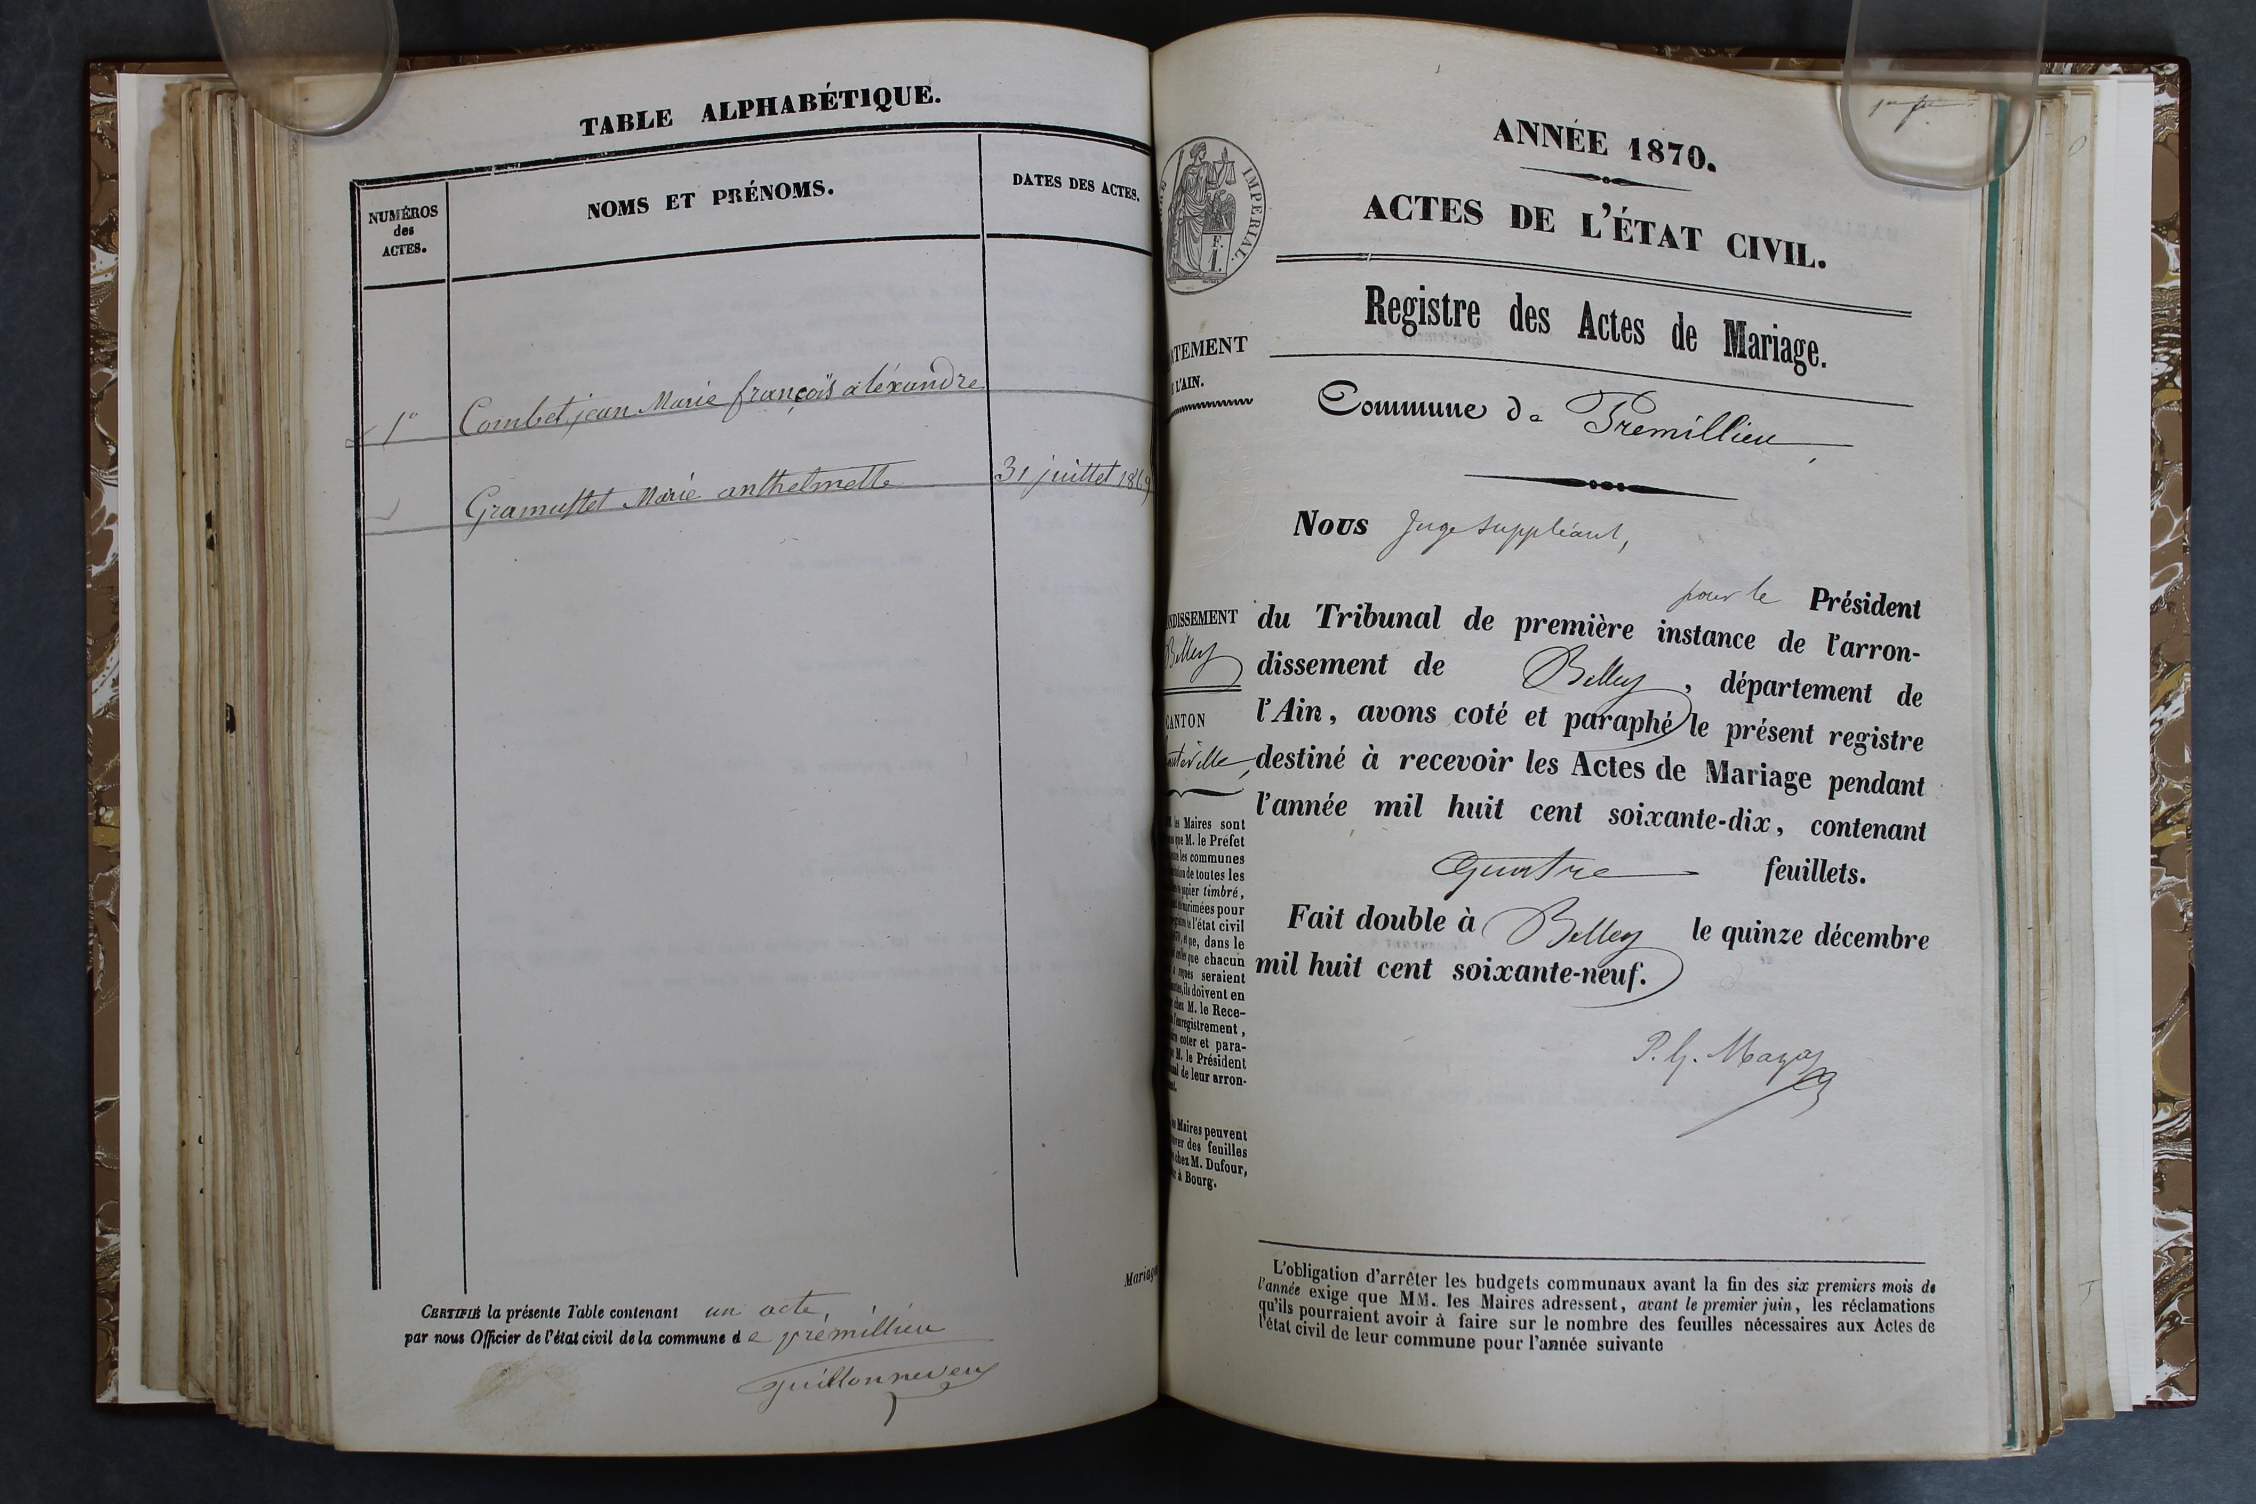 TABLE ALPHABÉTIQUE.
NUMÉROS
des
ACTES.
NOMS ET PRÉNOMS.
DATES DES ACTES.
1º Combet jean Marie françois aléxandre
Gramustet Marie anthelmette 31 juillet 1869
Mariage
CERTIFIÉ la présente Table contenant un acte,
par nous Officier de l'état civil de la commune de prémillieu
Guillonneveu
ANNÉE 1870.
ACTES DE L'ÉTAT CIVIL.
Registre des Actes de Mariage.
IMPÉRIAL.
F.
1.
TEMENT
L'AIN.
Commune de Premillieu
Nous Juge Suppléant,
pour le Président
du Tribunal de première instance de l'arron-
dissement de Belley, département de
l'Ain, avons coté et paraphé le présent registre
destiné à recevoir les Actes de Mariage pendant
l'année mil huit cent soixante-dix, contenant
Quatre feuillets.
Fait double à Belley le quinze décembre
mil huit cent soixante-neuf.
DISSEMENT
Belley
CANTON
teville
les Maires sont
que M. le Préfet
les communes
de toutes les
papier timbré,
imprimées pour
l'état civil
que, dans le
que chacun
seraient
ils doivent en
chez M. le Rece-
enregistrement,
coter et para-
M. le Président
de leur arron-
Maires peuvent
des feuilles
chez M. Dufour,
à Bourg.
L'obligation d'arrêter les budgets communaux avant la fin des six premiers mois de
l'année exige que MM. les Maires adressent, avant le premier juin, les réclamations
qu'ils pourraient avoir à faire sur le nombre des feuilles nécessaires aux Actes de
l'état civil de leur commune pour l'année suivante